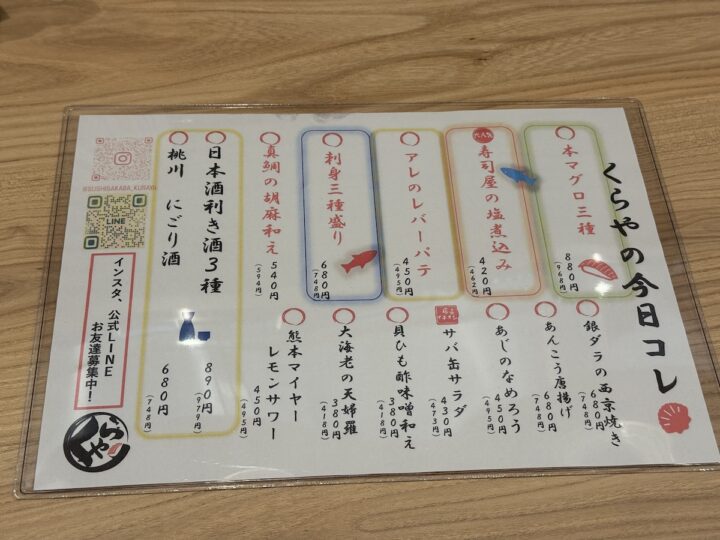 くらやの今日コレ
本マグロ三種
880円
(968円)
大人気
寿司屋の塩煮込み
420円
(462円)
アレのレバーパテ
450円
(495円)
刺身三種盛り
680円
(748円)
真鯛の胡麻和え
540円
(594円)
銀ダラの西京焼き
680円
(748円)
あんこう唐揚げ
680円
(748円)
あじのなめろう
450円
(495円)
サバ缶サラダ
430円
(473円)
貝ひも酢味噌和え
380円
(418円)
大海老の天婦羅
380円
(418円)
熊本マイヤー
レモンサワー
450円
(495円)
日本酒利き酒3種
890円
(979円)
桃川 にごり酒
680円
(748円)
LINE
インスタ、公式LINE
お友達募集中!
くらや